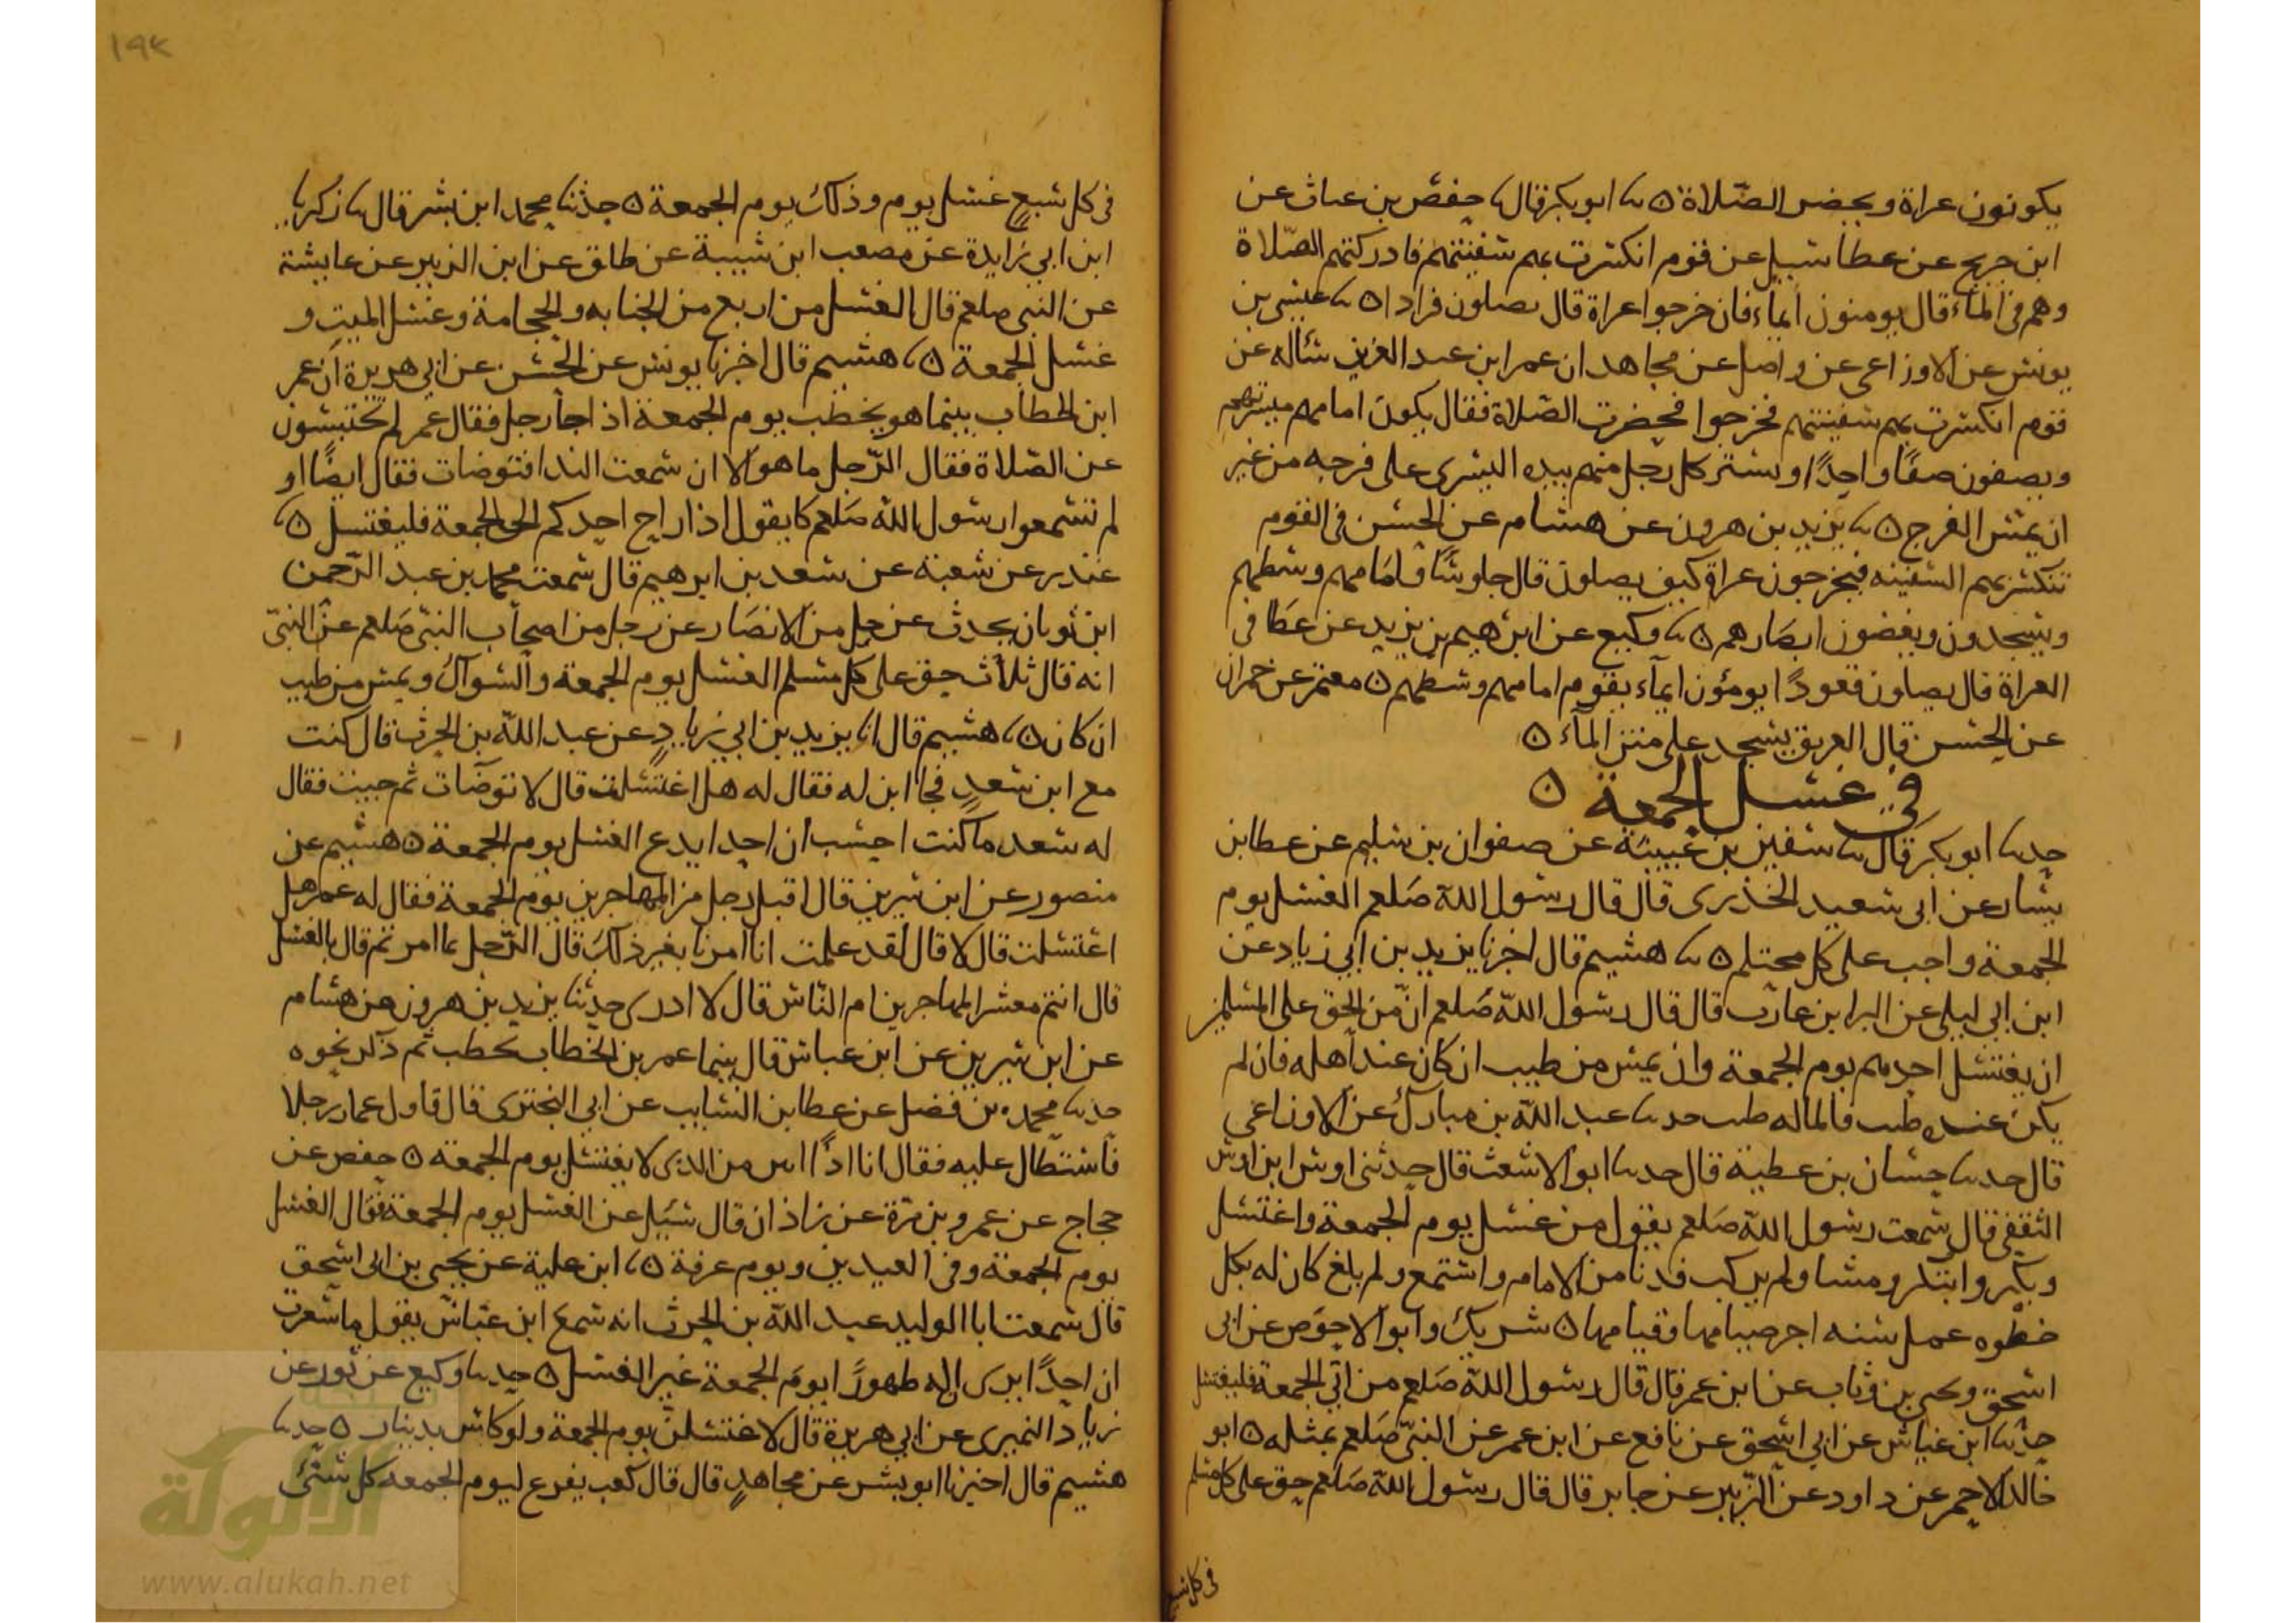 يكونون عراة وبحضر الصّلاة ٥ ثنا ابو بكر قال ثنا حفص بن غياث عن
ابن جريج عن عطا سيل عن قوم انكسرت بهم سفينتهم فادركتهم الصّلاة
وهم في المآء قال يومنون ايمآء فان خرجوا عراة قال يصلون فرادا ٥ ثنا عيسى بن
يونس عن الاوزاعى عن واصل عن مجاهد ان عمر ابن عبد العزيز سأله عن
قوم انكسرت بهم سفينتهم فخرجوا فحضرت الصّلاة فقال يكون امامهم ميسرتهم
ويصفون صفًا واحدًا ويستتر كل رجل منهم بيده اليسرى على فرجه من غير
ان يمس الفرج ٥ ثنا يزيد بن هرون عن هشام عن الحسن في القوم
تنكسر بهم السفينه فيخرجون عراة كيف يصلون قال جلوسًا وامامهم وسطهم
ويسجدون ويغضون ابصارهم ٥ ثنا وكيع عن ابرهيم بن يزيد عن عطا في
العراة قال يصلون قعودًا يومؤن ايمآء يقوم امامهم وسطهم ٥ معتمر عن حمران
عن الحسن قال الغريق يسجد على متن المآء ٥
في غسل الجمعة ٥
حدثنا ابو بكر قال ثنا سفين بن عيينة عن صفوان بن سليم عن عطا بن
يسار عن ابى سعيد الخذرى قال قال رسول اللّه صَلعم الغسل يوم
الجمعة واجب على كل محتلم ٥ ثنا هشيم قال اخبرنا يزيد بن ابي زياد عن
ابن ابي ليلى عن البرا بن عازب قال قال رسول اللّه صَلعم انّ من الحق على المسلمين
ان يغتسل احدهم يوم الجمعة وان يمس من طيب ان كان عند اهله فان لم
يكن عنده طيب فالماله طيب حدثنا عبد اللّه بن مبارك عن الاوزاعي
قال حدثنا حسان بن عطية قال حدثنا ابو الاشعث قال حدثنى اوس ابن اوس
الثقفي قال سمعت رسول اللّه صَلعم يقول من غسل يوم الجمعة واغتسل
وبكر وابتكر ومشا ولم يركب فدنا من الامام واستمع ولم يلغ كان له بكل
خطوه عمل سنه اجر صيامها وقيامها ٥ شريك وابو الاحوَص عن ابى
اسحق ويحيى بن وثاب عن ابن عمر قال قال رسول اللّه صَلعم من اتي الجمعة فليغتسل
حدثنا ابن عياش عن ابي اسحق عن نافع عن ابن عمر عن النبىّ صَلعم بمثله ٥ ابو
خالد الاحمر عن داود عن الزبير عن جابر قال قال رسول اللّه صَلعم حق على كل مسلم
في كل سبع
١٩٢
في كل سبع غسل يوم وذلك يوم الجمعة ٥ حدثنا محمد ابن بشر قال ثنا زكريا
ابن ابي زايدة عن مصعب ابن شيبة عن طلق عن ابن الزبير عن عايشة
عن النبى صلعم قال الغسل من اربع من الجنابه والحجامة وغسل الميت و
غسل الجمعة ٥ ثنا هشيم قال اخبرنا يونس عن الحسن عن ابي هريرة ان عمر
ابن الخطاب بينما هو يخطب يوم الجمعة اذا جآ رجل فقال عمر لم تحتبسون
عن الصّلاة فقال الرّجل ما هو الا ان سمعت الندا فتوضات فقال ايضًا او
لم تسمعوا رسول اللّه صَلعم كا يقول اذا راح احدكم الى الجمعة فليغتسل ٥ ثنا
غندر عن شعبة عن سعد بن ابرهيم قال سمعت محمد بن عبد الرّحمن
ابن ثوبان يحدث عن جل من الانصَار عن رجل من اصحاب النبى صَلعم عن النبىّ
انه قال ثلاث حق على كل مسلم الغسل يوم الجمعة والسواك ويمس من طيب
ان كان ٥ ثنا هشيم قال انا يزيد بن ابي زيادٍ عن عبد اللّه بن الحرث قال كنت
مع ابن سعدٍ فجا ابن له فقال له هل اغتسلت قال لا توضآت ثم جيت فقال
له سعد ما كنت احسب ان احدا يدع الغسل يوم الجمعة ٥ هشيم عن
منصور عن ابن سيرين قال اقبل رجل من المهاجرين يوم الجمعة فقال له عمر هل
اغتسلت قال لا قال لقد علمت انا امرنا بغير ذلك قال الرّجل بما امرتم قال بالغسل
قال انتم معشر المهاجرين ام النّاس قال لا ادرى حدثنا يزيد بن هرون عن هشام
عن ابن سيرين عن ابن عباس قال بينما عمر بن الخطاب يخطب ثم ذكر نحوه
حدثنا محمد بن فضل عن عطا بن السايب عن ابي البختري قال قاول عمار رجلا
فاستطال عليه فقال انا اذًا انتن من الذى لا يغتسل يوم الجمعة ٥ حفص عن
حجاج عن عمرو بن مرة عن زاذان قال سيل عن الغسل يوم الجمعة فقال الغسل
يوم الجمعة وفى العيدين ويوم عرفة ٥ ثنا ابن علية عن يحيى بن ابى اسحق
قال سمعت ابا الوليد عبد اللّه بن الحرث انه سمع ابن عباس يقول ما شعرت
ان احدًا يرى له طهورًا يوم الجمعة غير الغسل ٥ حدثنا وكيع عن ثور عن
زياد النميرى عن ابي هريرة قال لاغتسلن يوم الجمعة ولو كاس بدينار ٥ حدثنا
هشيم قال اخبرنا ابو بشر عن مجاهدٍ قال قال كعب يفرع ليوم الجمعه كل شئ
الألوكة
www.alukah.net